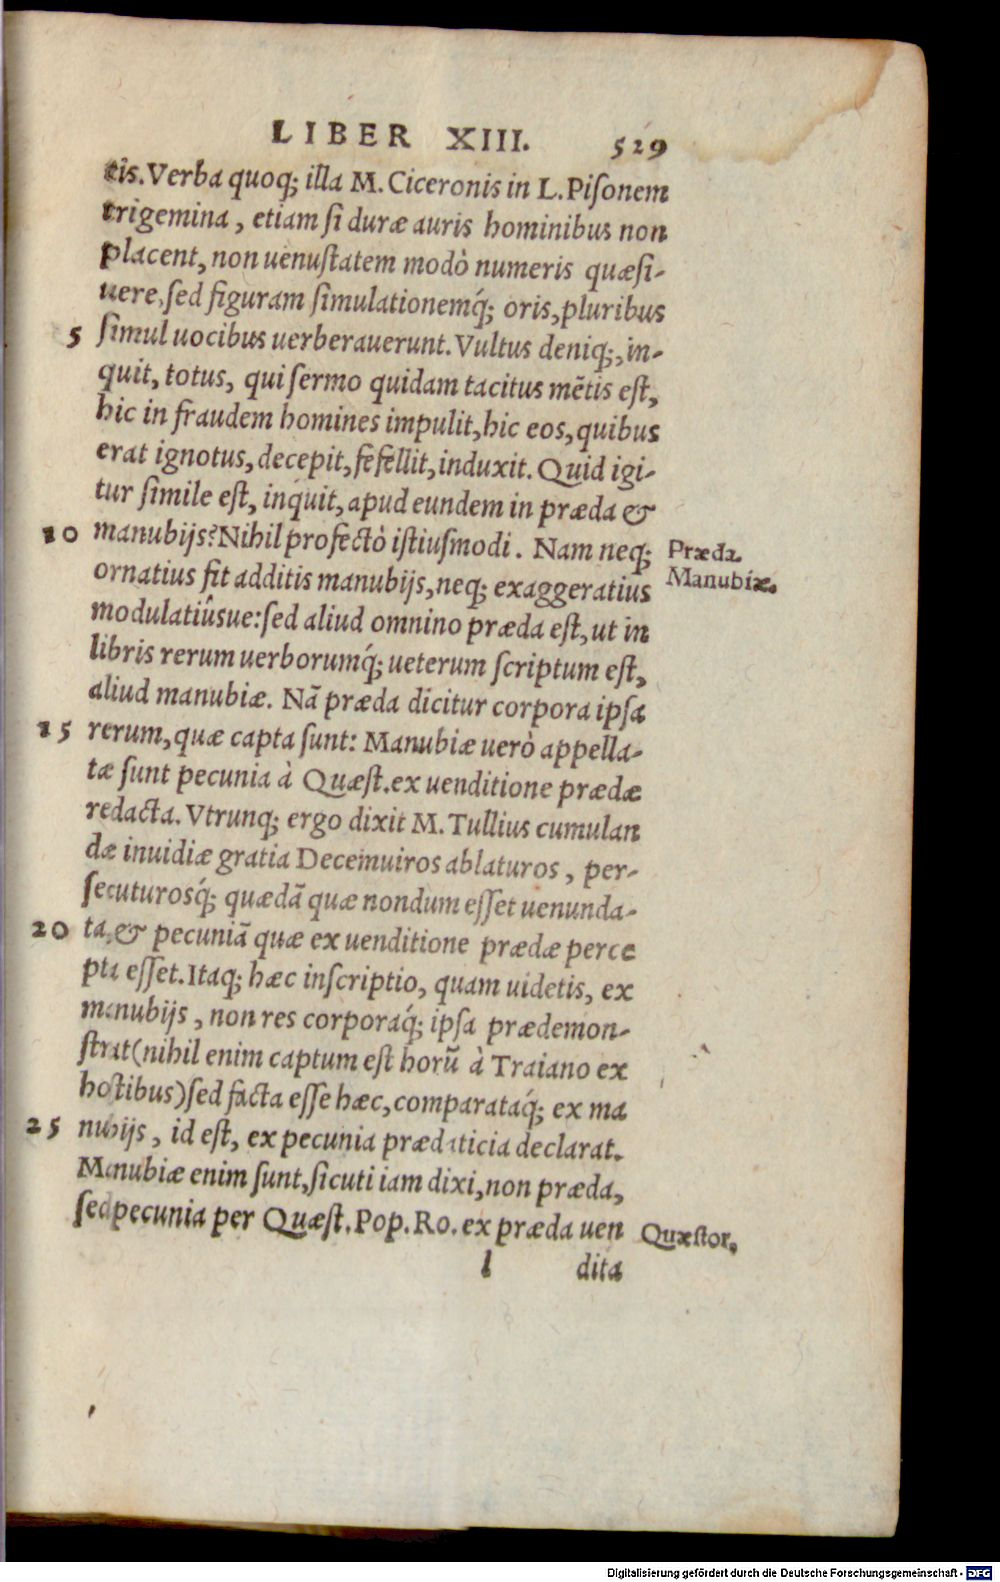 LIBER XIII. 529
tis. Verba quoq; illa M. Ciceronis in L. Piſonem
trigemina, etiam ſi duræ auris hominibus non
placent, non uenuſtatem modò numeris quæſi-
uere, ſed figuram ſimulationemq́; oris, pluribus
5 ſimul uocibus uerberauerunt. Vultus deniq;, in-
quit, totus, qui ſermo quidam tacitus mẽtis eſt,
hic in fraudem homines impulit, hic eos, quibus
erat ignotus, decepit, fefellit, induxit. Quid igi-
tur ſimile eſt, inquit, apud eundem in præda &
10 manubijs? Nihil profectò iſtiuſmodi. Nam neq; Præda.
ornatius fit additis manubijs, neq; exaggeratius Manubiæ.
modulatiûsue: ſed aliud omnino præda eſt, ut in
libris rerum uerborumq́; ueterum ſcriptum eſt,
aliud manubiæ. Nã præda dicitur corpora ipſa
15 rerum, quæ capta ſunt: Manubiæ uerò appella-
tæ ſunt pecunia à Quæſt. ex uenditione prædæ
redacta. Vtrunq; ergo dixit M. Tullius cumulan
dæ inuidiæ gratia Decemuiros ablaturos, per-
ſecuturosq́; quædã quæ nondum eſſet uenunda-
20 ta, & pecuniã quæ ex uenditione prædæ perce
pta eſſet. Itaq; hæc inſcriptio, quam uidetis, ex
manubijs, non res corporaq́; ipſa prædemon-
ſtrat (nihil enim captum eſt horũ à Traiano ex
hoſtibus) ſed facta eſſe hæc, comparataq́; ex ma
25 nubijs, id eſt, ex pecunia prædaticia declarat.
Manubiæ enim ſunt, ſicuti iam dixi, non præda,
ſed pecunia per Quæſt. Pop. Ro. ex præda uen Quæſtor.
l dita
Digitalisierung gefördert durch die Deutsche Forschungsgemeinschaft - DFG